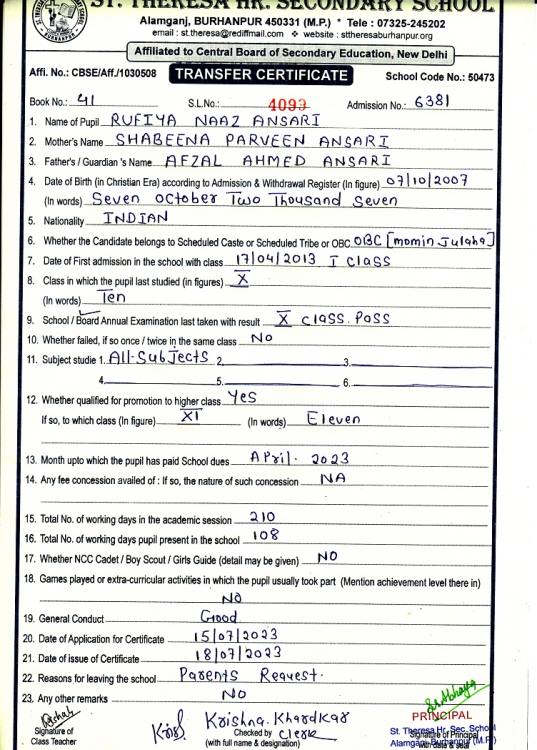 ST. THERESA HR. SECONDARY SCHOOL
Alamganj, BURHANPUR 450331 (M.P.) * Tele : 07325-245202
email : st.theresa@rediffmail.com ❖ website : sttheresaburhanpur.org
Affiliated to Central Board of Secondary Education, New Delhi
Affi. No.: CBSE/Aff./1030508 TRANSFER CERTIFICATE School Code No.: 50473
Book No.: 41 S.L.No.: 4093 Admission No.: 6381
1. Name of Pupil RUFIYA NAAZ ANSARI
2. Mother's Name SHABEENA PARVEEN ANSARI
3. Father's / Guardian 's Name AFZAL AHMED ANSARI
4. Date of Birth (in Christian Era) according to Admission & Withdrawal Register (In figure) 07/10/2007
(In words) Seven October Two Thousand Seven
5. Nationality INDIAN
6. Whether the Candidate belongs to Scheduled Caste or Scheduled Tribe or OBC OBC [momin Julaha]
7. Date of First admission in the school with class 17/04/2013 I class
8. Class in which the pupil last studied (in figures) X
(In words) Ten
9. School / Board Annual Examination last taken with result X class Pass
10. Whether failed, if so once / twice in the same class No
11. Subject studie 1. All-Subjects 2. 3.
4. 5. 6.
12. Whether qualified for promotion to higher class Yes
If so, to which class (In figure) XI (In words) Eleven
13. Month upto which the pupil has paid School dues April. 2023
14. Any fee concession availed of : If so, the nature of such concession NA
15. Total No. of working days in the academic session 210
16. Total No. of working days pupil present in the school 108
17. Whether NCC Cadet / Boy Scout / Girls Guide (detail may be given) NO
18. Games played or extra-curricular activities in which the pupil usually took part (Mention achievement level there in)
No
19. General Conduct Good
20. Date of Application for Certificate 15/07/2023
21. Date of issue of Certificate 18/07/2023
22. Reasons for leaving the school Parents Request.
23. Any other remarks No
PRINCIPAL
Krishna Khardkar
Signature of Checked by Clerk St. Theresa Hr. Sec. School
Class Teacher (with full name & designation) Signature of Principal
Alamganj, Burhanpur (M.P.)
with date & seal